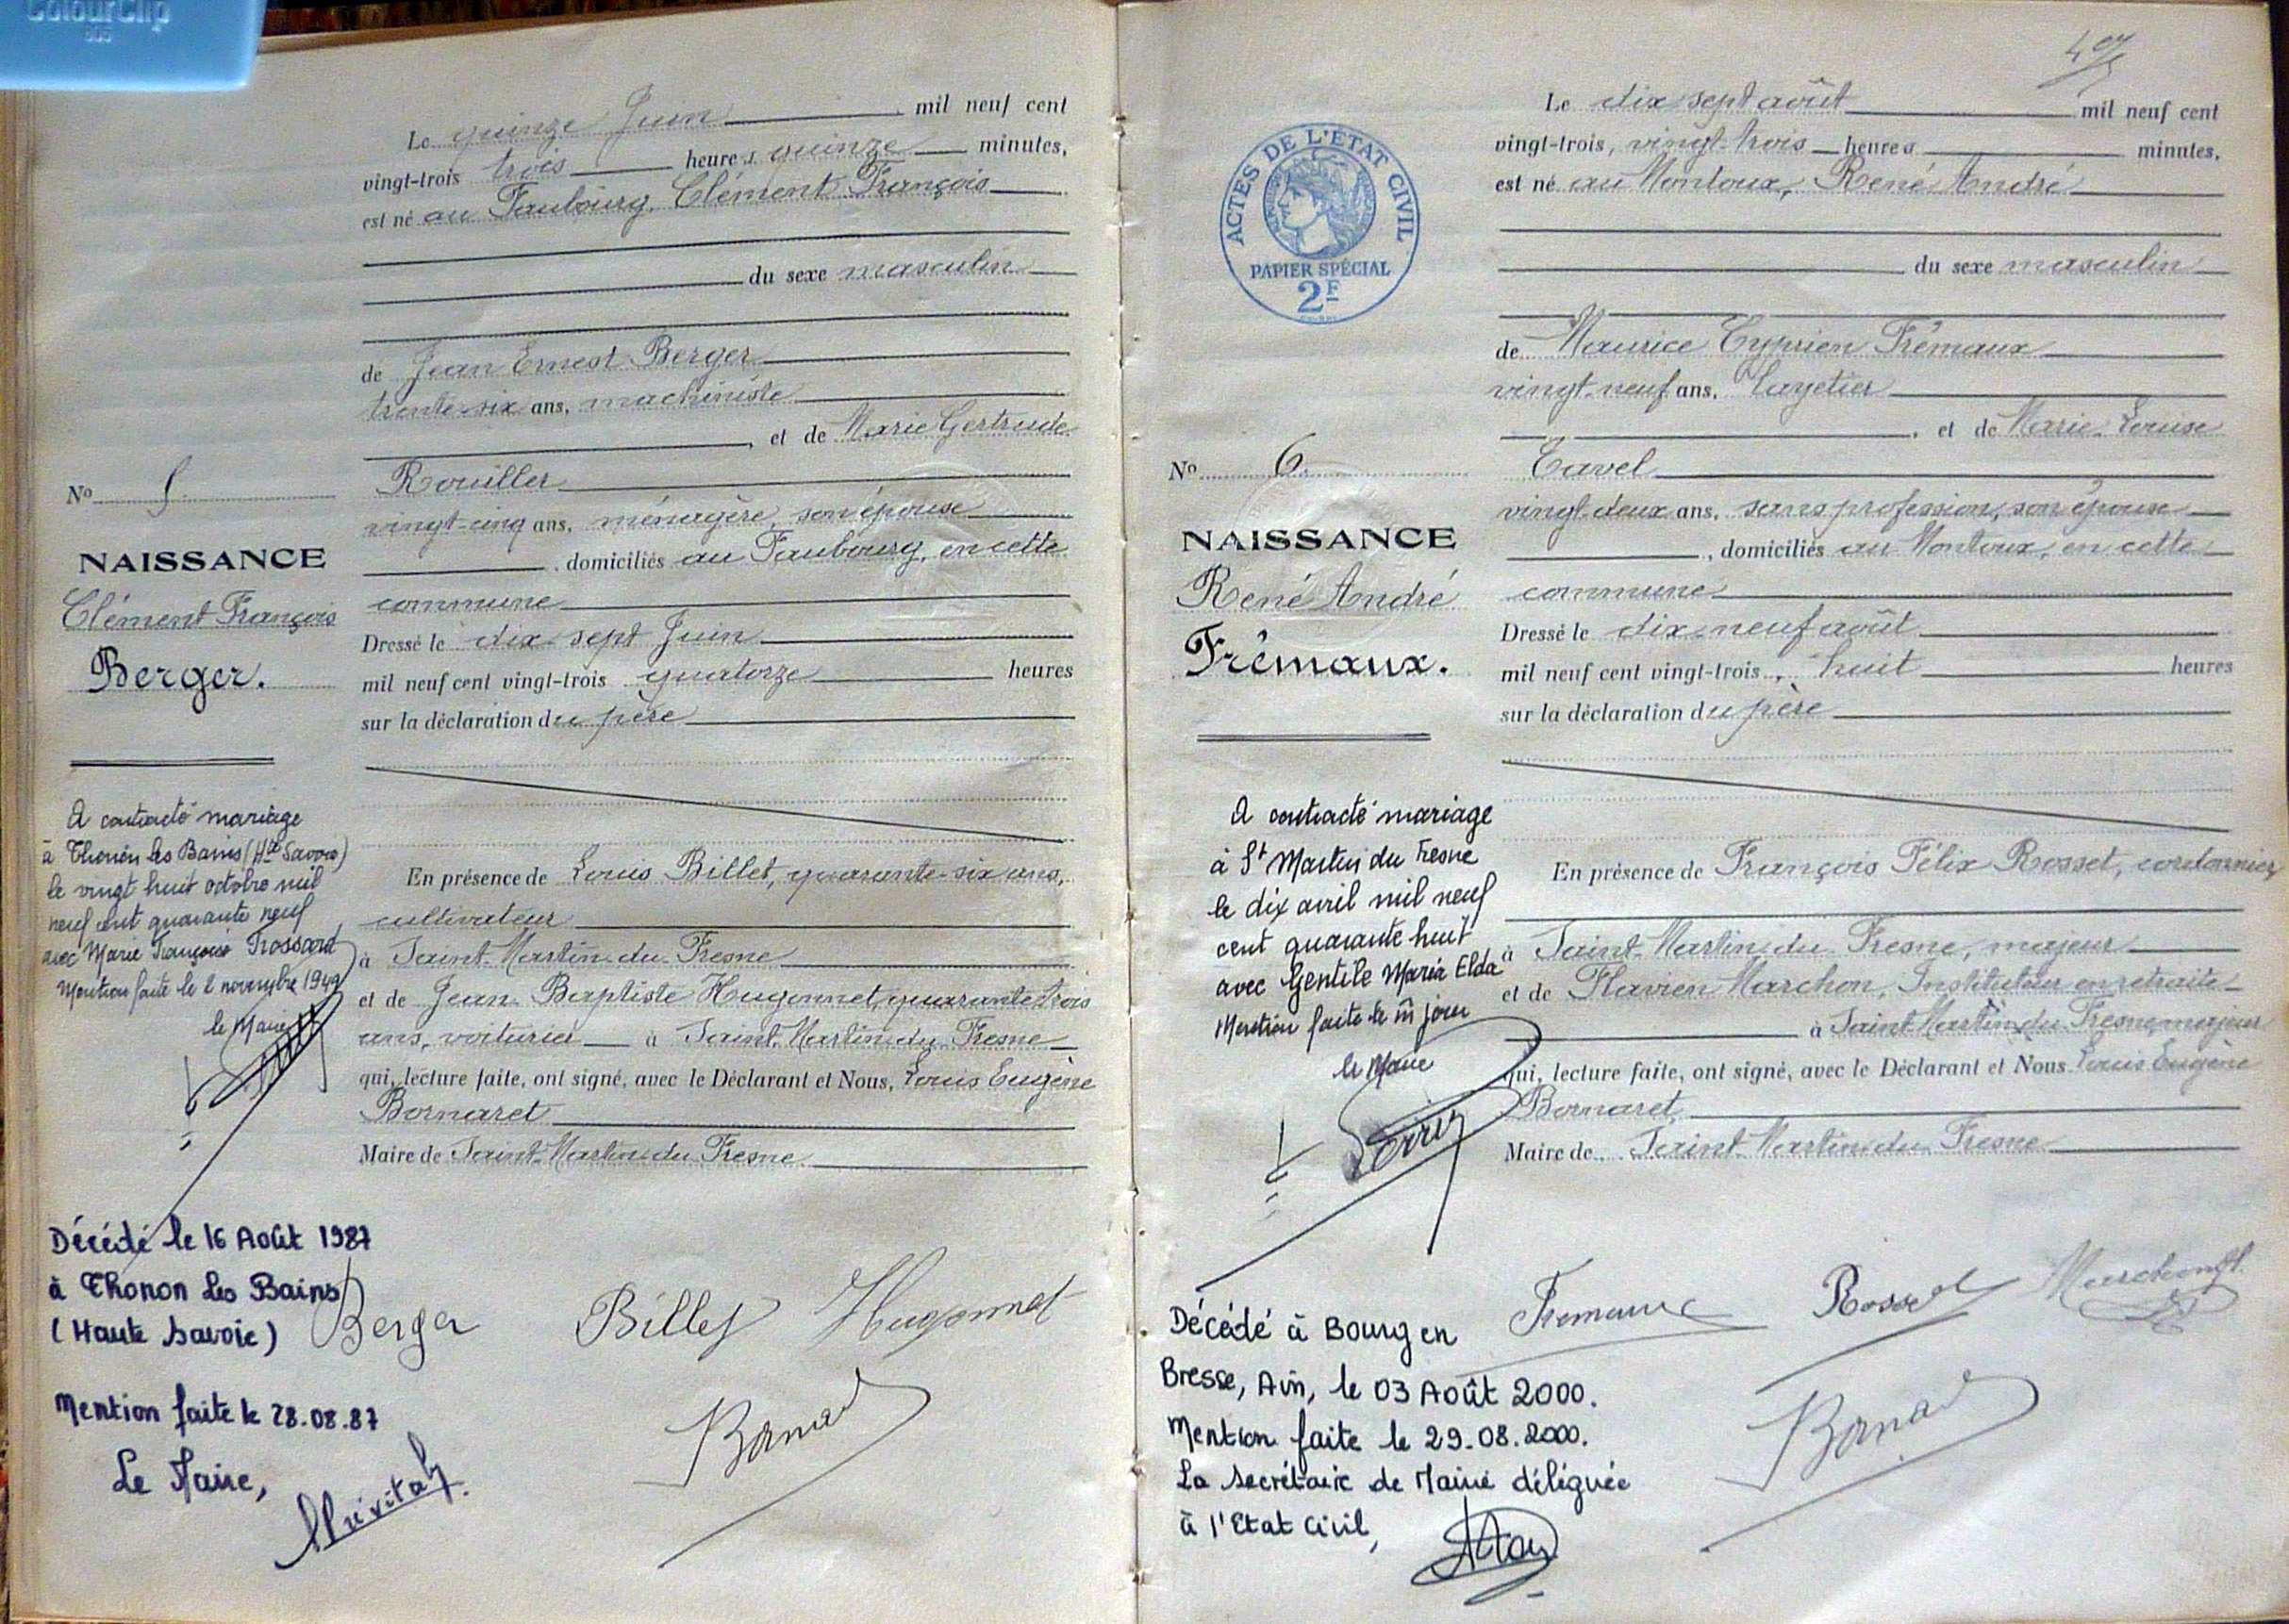 ColourClip
Le quinze Juin mil neuf cent
vingt-trois trois heures quinze minutes,
est né au Faubourg, Clément François
du sexe masculin
de Jean Ernest Berger
trente-six ans, machiniste
, et de Marie Gertrude
Rouiller
vingt-cinq ans, ménagère, son épouse
, domiciliés au Faubourg, en cette
commune
Dressé le dix-sept Juin
mil neuf cent vingt-trois quatorze heures
sur la déclaration du père
En présence de Louis Billet, quarante-six ans,
cultivateur
à Saint-Martin-du-Fresne
et de Jean-Baptiste Hugonnet, quarante trois
ans, voiturier à Saint-Martin-du-Fresne
qui, lecture faite, ont signé, avec le Déclarant et Nous, Louis Eugène
Bornaret
Maire de Saint-Martin-du-Fresne
No 5
NAISSANCE
Clément François
Berger.
A contracté mariage
à Thonon les Bains (Hte Savoie)
le vingt huit octobre mil
neuf cent quarante neuf
avec Marie Françoise Frossard
Mention faite le 2 novembre 1949
le Maire
Décédé le 16 Août 1987
à Thonon Les Bains
(Haute Savoie)
Mention faite le 28.08.87
Le Maire,
Berger Billet Hugonnet
ACTES DE L'ÉTAT CIVIL
PAPIER SPÉCIAL
2F
Le dix-sept août mil neuf cent
vingt-trois, vingt-trois heures minutes,
est né au Montoux, René André
du sexe masculin
de Maurice Cyprien Frémaux
vingt-neuf ans, Layetier
, et de Marie-Louise
Cavel
vingt-deux ans, sans profession, son épouse
, domiciliés au Montoux, en cette
commune
Dressé le dix-neuf août
mil neuf cent vingt-trois, huit heures
sur la déclaration du père
En présence de François Félix Rosset, cordonnier
à Saint-Martin-du-Fresne, majeur
et de Flavien Marchon, Instituteur en retraite
à Saint-Martin-du-Fresne, majeur
qui, lecture faite, ont signé, avec le Déclarant et Nous Louis Eugène
Bornaret
Maire de Saint-Martin-du-Fresne
No 6
NAISSANCE
René André
Frémaux.
A contracté mariage
à St Martin du Fresne
le dix avril mil neuf
cent quarante huit
avec Gentile Maria Elda
Mention faite le m̄ jour
le Maire
Décédé à Bourg en
Bresse, Ain, le 03 Août 2000.
Mention faite le 29.08.2000.
La secrétaire de Mairie déléguée
à l'Etat Civil,
Fremaux Rosset